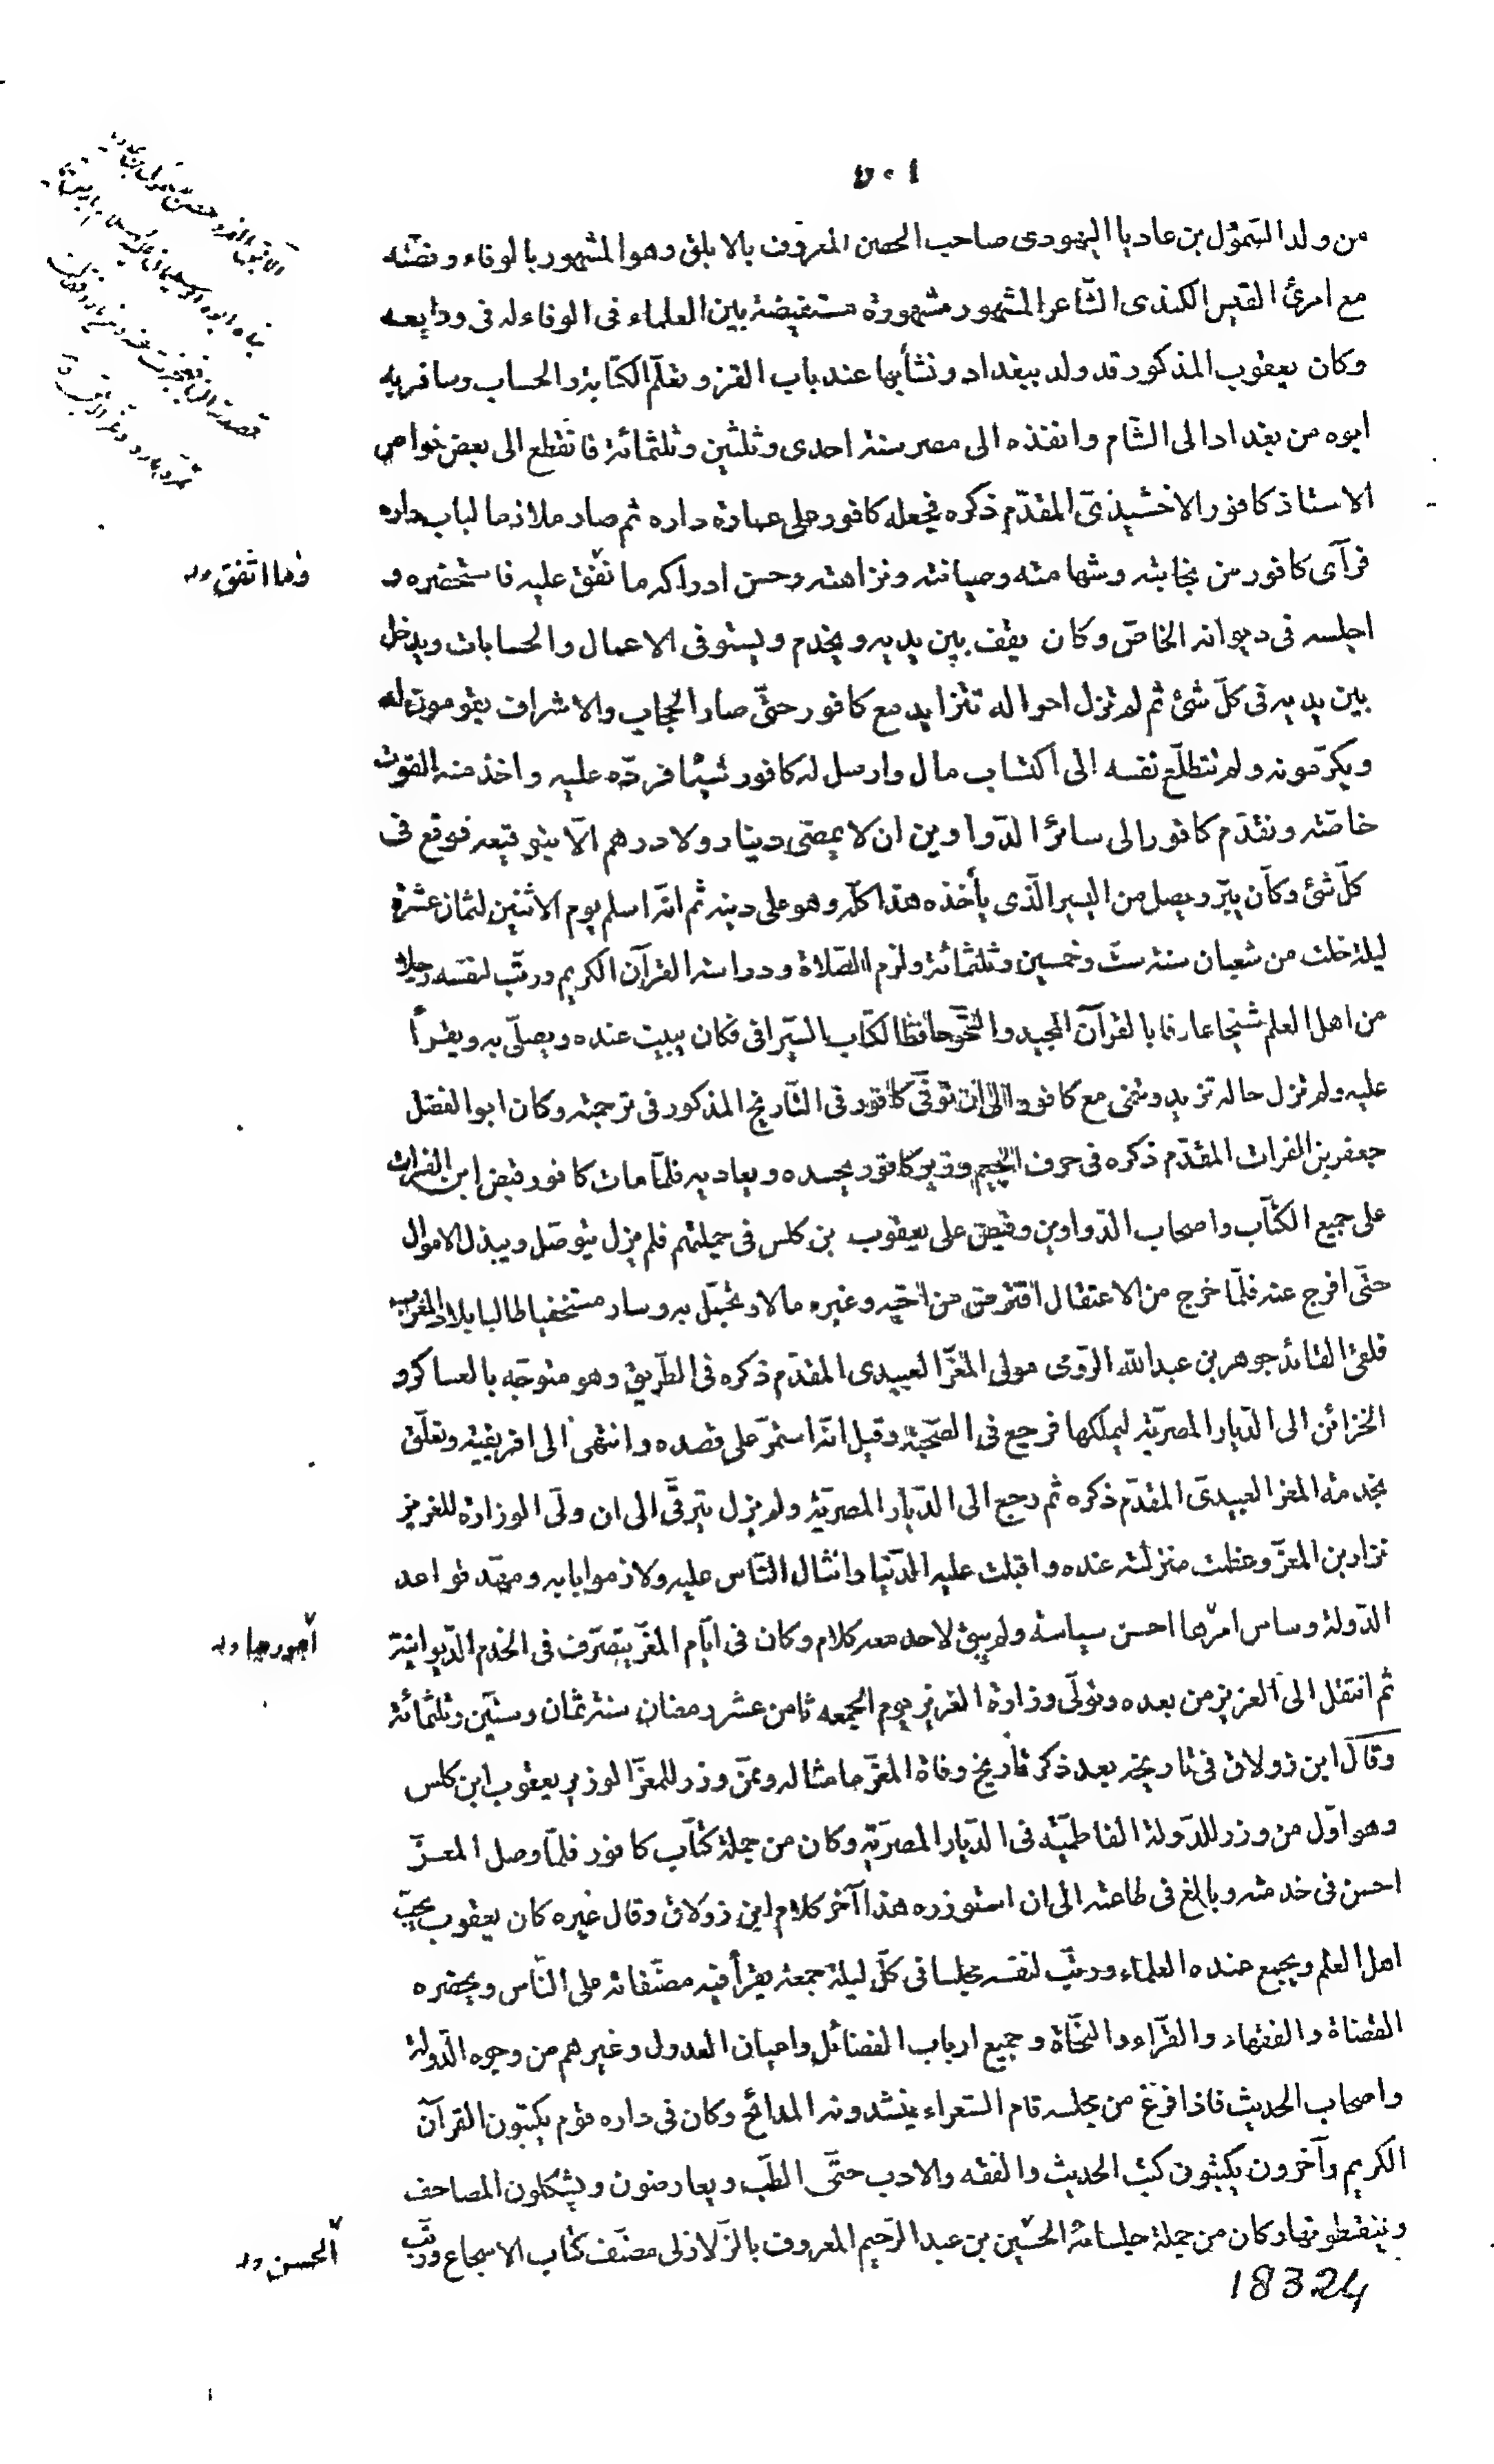 ٥٠١
من ولد السمؤل بن عاديا اليهودى صاحب الحصن المعروف بالابلق وهو المشهور بالوفاء وقصّته
مع امرئ القيس الكندى الشّاعر المشهور مشهورة مستفيضة بين العلماء فى الوفاء له فى ودايعه
وكان يعقوب المذكور قد ولد ببغداد ونشأ بها عند باب القز وتعلّم الكتابة والحساب وسافر به
ابوه من بغداد الى الشّام وانفذه الى مصر سنة احدى وثلثين وثلثمائة فانقطع الى بعض خواص
الاستاذ كافور الاخشيدىّ المقدّم ذكره فجعله كافور على عمارة داره ثم صار ملازما لباب داره
فرآى كافور من نجابته وشهامته وصيانته ونزاهته وحسن ادراكه ما نفق عليه فاستحضره و
وما اتفق
اجلسه فى ديوانه الخاصّ وكان يقف بين يديه ويخدم ويستوفى الاعمال والحسابات ويدخل
بين يديه فى كلّ شئ ثم لم تزل احواله تتزايد مع كافور حتّى صار الحجاب والاشراف يقومون له
ويكرّمونه ولم تتطلّع نفسه الى اكتساب مال وارسل له كافور شيئا فردّه عليه واخذ منه القوت
خاصّة وتقدّم كافور الى سائر الدّواوين ان لا يمضى دينار ولا درهم الّا بتوقيعه فوقع فى
كلّ شئ وكان يبرّ ويصل من اليسير الّذى يأخذه هذا كلّه وهو على دينه ثم انّه اسلم يوم الاثنين لثمان عشرة
ليلة خلت من شعبان سنة ستّ وخمسين وثلثمائة ولزم الصّلاة ودراسة القرآن الكريم ورتّب لنفسه رجلا
من اهل العلم شيخا عارفا بالقرآن المجيد والنّحو حافظا لكتاب السّيرافى فكان يبيت عنده ويصلّى به ويقرأ
عليه ولم تزل حاله تزيد وتنمى مع كافور الى ان توفّى كافور فى التّاريخ المذكور فى ترجمته وكان ابو الفضل
جعفر بن الفرات المقدّم ذكره فى حرف الجيم وزير كافور يحسده ويعاديه فلمّا مات كافور قبض ابن الفرات
على جميع الكتّاب واصحاب الدّواوين وقبض على يعقوب بن كلس فى جملتهم فلم يزل يتوصّل ويبذل الاموال
حتّى افرج عنه فلمّا خرج من الاعتقال اقترض من اخيه وغيره مالا وتجمّل به وسار مستخفيا طالبا بلاد المغرب
فلقى القائد جوهر بن عبد اللّه الرّومى مولى المعزّ العبيدى المقدّم ذكره فى الطّريق وهو متوجّه بالعساكر و
الخزائن الى الدّيار المصريّة ليملكها فرجع فى الصّحبة وقيل انّه استمرّ على قصده وانتهى الى افريقية وتعلّق
بخدمة المعز العبيدىّ المقدّم ذكره ثم رجع الى الدّيار المصريّة ولم يزل يترقّى الى ان ولّى الوزارة للعزيز
نزار بن المعزّ وعظمت منزلته عنده واقبلت عليه الدّنيا وانثال النّاس عليه ولازموا بابه ومهّد قواعد
الدّولة وساس امرها احسن سياسة ولم يبق لاحد معه كلام وكان فى ايّام المعزّ يتصرّف فى الخدم الدّيوانيّة
امورها
ثم انتقل الى العزيز من بعده وتولّى وزارة العزيز يوم الجمعه ثامن عشر رمضان سنة ثمان وستّين وثلثمائة
وقال ابن زولاق فى تاريخه بعد ذكر تاريخ وفاة المعزّ ما مثاله وممّن وزر للمعزّ الوزير يعقوب ابن كلس
وهو اوّل من وزر للدّولة الفاطميّه فى الدّيار المصريّة وكان من جملة كتّاب كافور فلمّا وصل المعزّ
احسن فى خدمته وبالغ فى طاعته الى ان استوزره هذا آخر كلام ابن زولاق وقال غيره كان يعقوب يحبّ
اهل العلم ويجمع عنده العلماء ورتّب لنفسه مجلسا فى كلّ ليلة جمعة يقرأ فيه مصنّفاته على النّاس ويحضره
القضاة والفقهاء والقرّاء والنّحاة وجميع ارباب الفضائل واعيان العدول وغيرهم من وجوه الدّولة
واصحاب الحديث فاذا فرغ من مجلسه قام الشعراء ينشدونه المدائح وكان فى داره قوم يكتبون القرآن
الكريم وآخرون يكتبون كتب الحديث والفقه والادب حتّى الطّب ويعارضون ويشكلون المصاحف
وينقطونها وكان من جملة جلسائه الحسين بن عبد الرّحيم المعروف بالزّلازلى مصنّف كتاب الاسجاع ورتّب
الحسن
18324